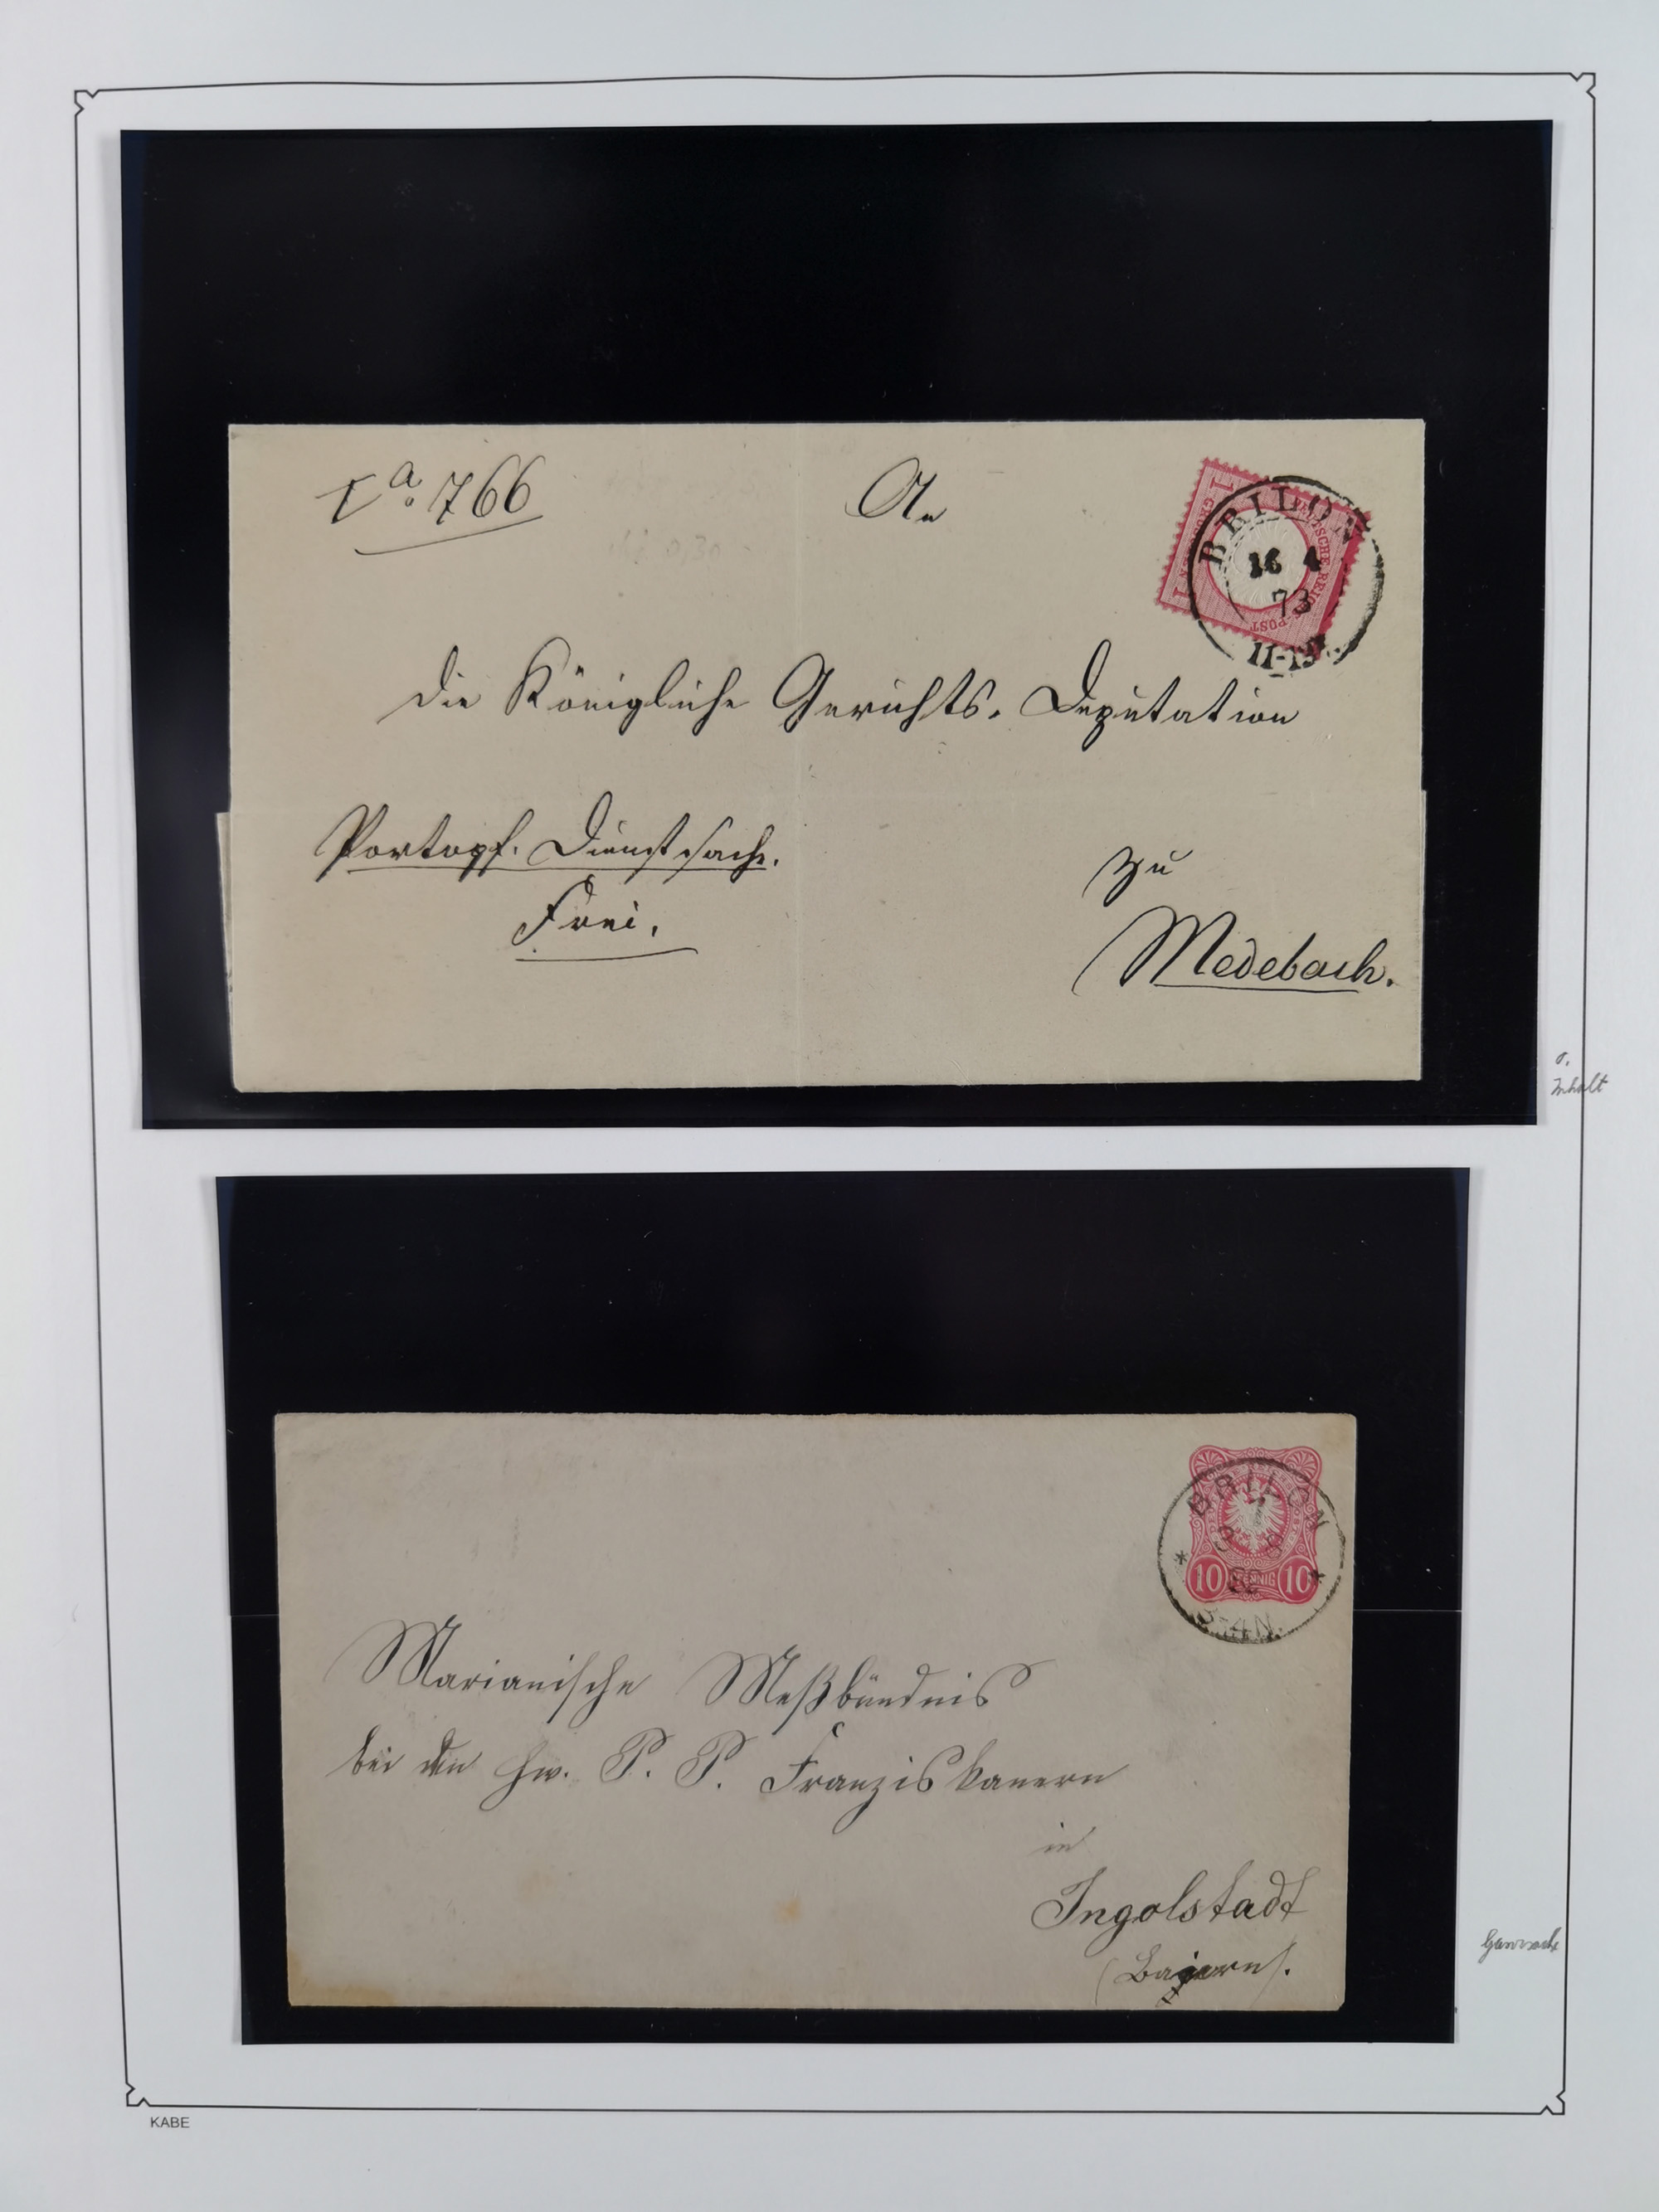 I a. 766
An
BRILON
16 4
73
1 GROSCHEN 1
DEUTSCHE REICHS-POST
die Königliche Gerichts-Deputation
Portopf. Dienstsache.
Frei.
zu
Medebach.
o.
Inhalt
BRILON
9 9
82
3-4N.
10 PFENNIG 10
Marianische Meßbündnis
bei den Hw. P. P. Franziskanern
in
Ingolstadt
(Bayern).
Ganzsache
KABE